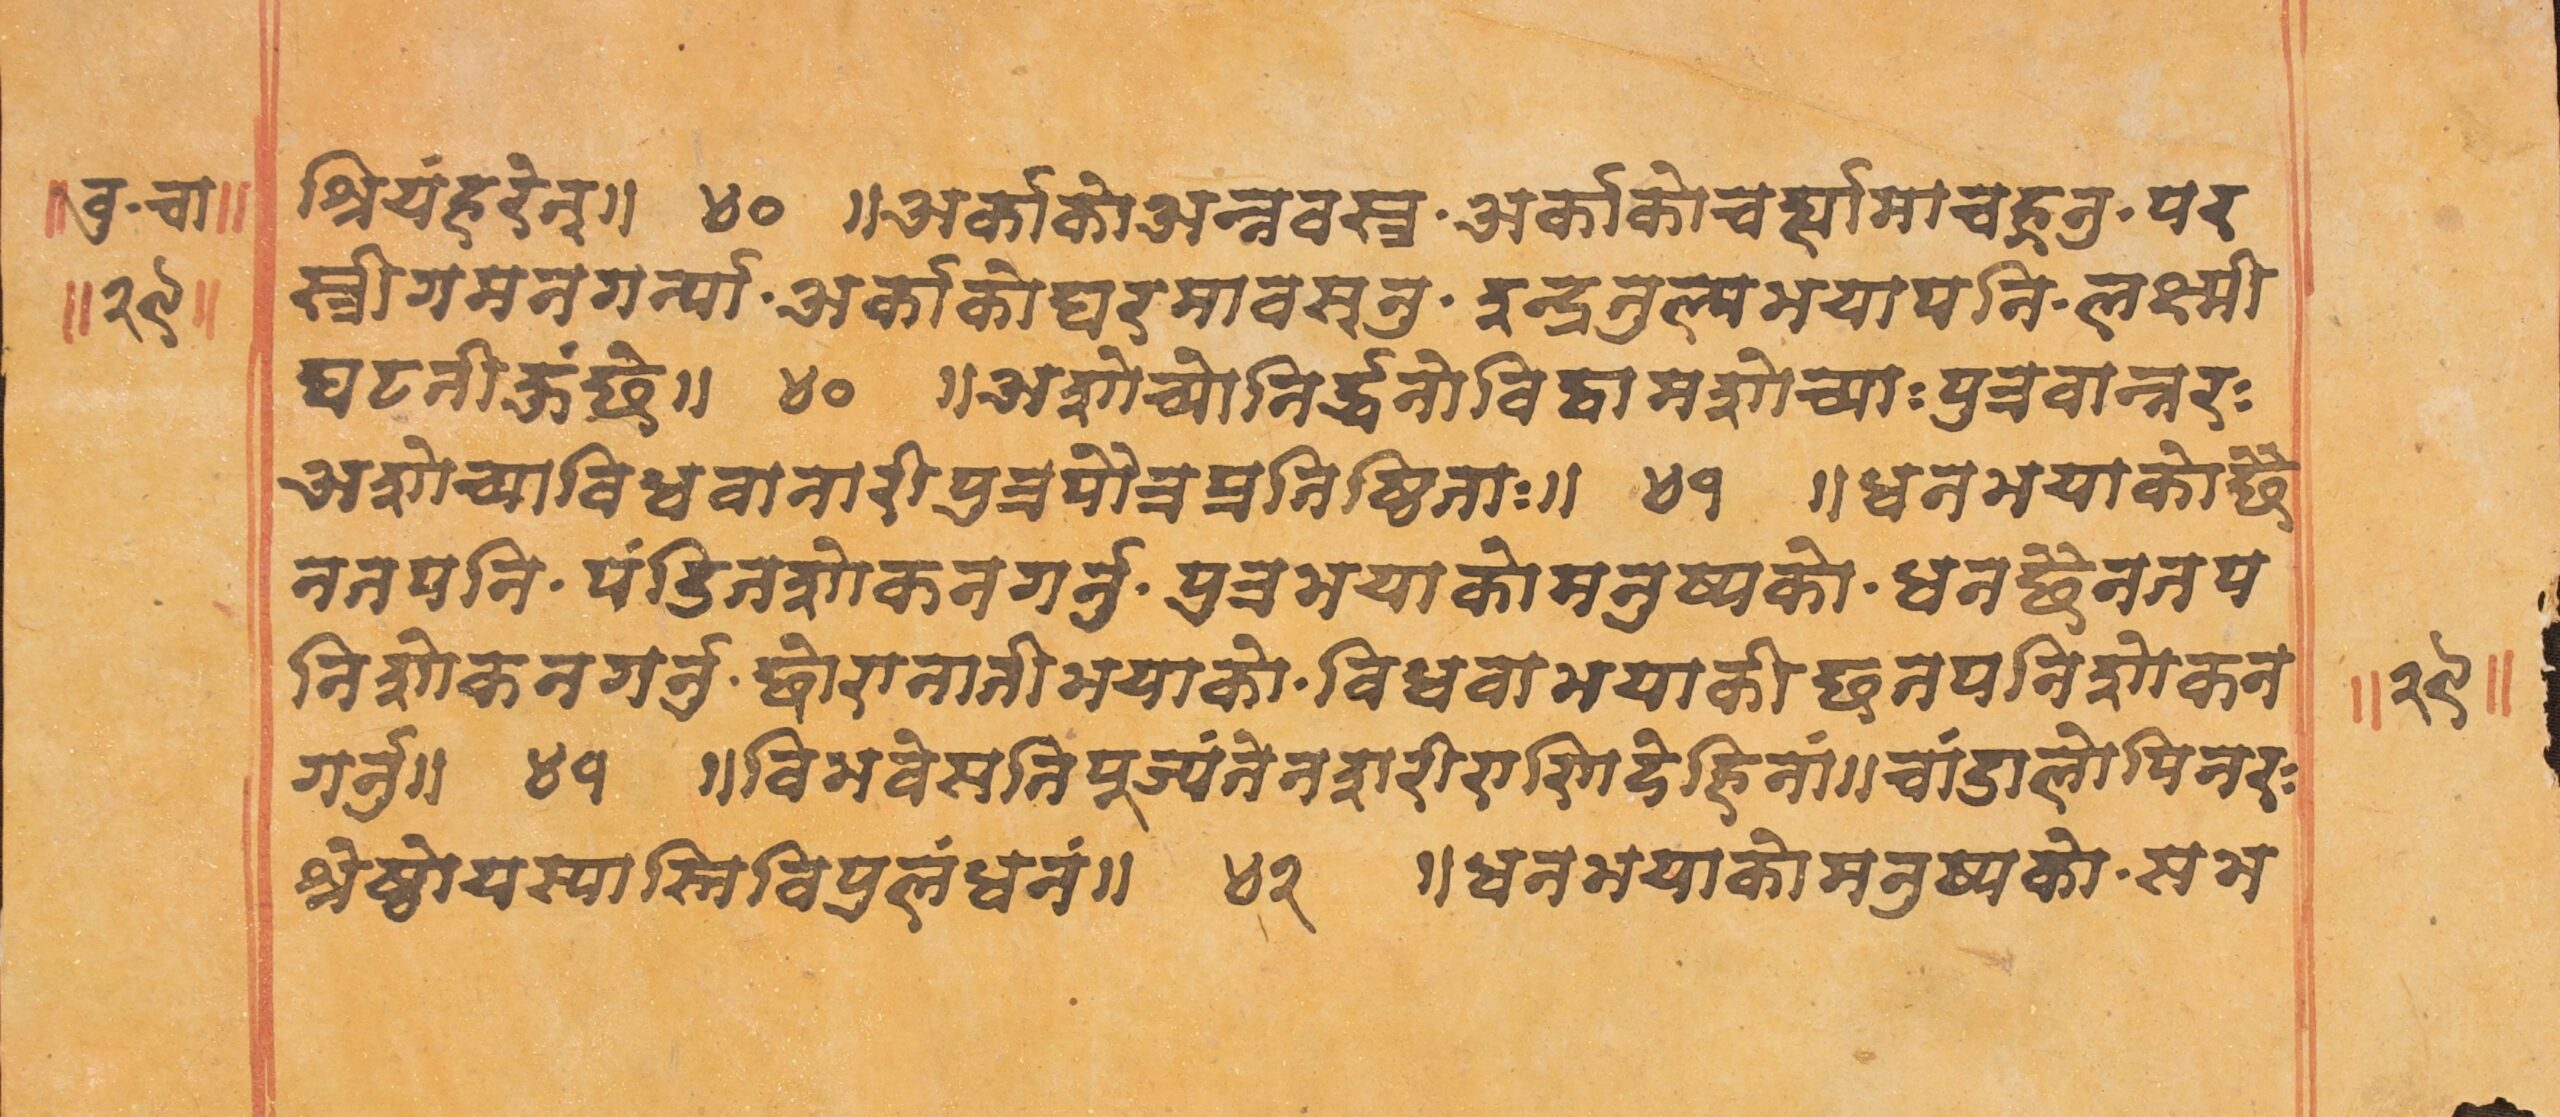 ॥वृ·चा॥
॥२९॥
श्रियंहरेत्॥ ४० ॥अर्काकोअन्नवस्त्र·अर्काकोचर्ह्यामाचह्रनु·पर
स्त्रीगमनगर्न्या·अर्काकोघरमावस्नु·इन्द्रतुल्यभयापनि·लक्ष्मी
घटतीऊंछे॥ ४० ॥अशोच्योनिर्द्धनोविद्वामशोच्याःपुत्रवान्नरः
अशोच्याविधवानारीपुत्रपौत्रप्रतिष्ठिताः॥ ४१ ॥धनभयाकोछै
ननपनि·पंडितशोकनगर्नु·पुत्रभयाकोमनुष्यको·धनछैननप
निशोकनगर्नु·छोरानातीभयाको·विधवाभयाकीछनपनिशोकन
गर्नु॥ ४१ ॥विभवेसतिपूज्यंतेनशरीराणिदेहिनां॥चांडालोपिनरः
श्रेष्ठोयस्यास्तिविपुलंधनं॥ ४२ ॥धनभयाकोमनुष्यको·सभ
॥२९॥